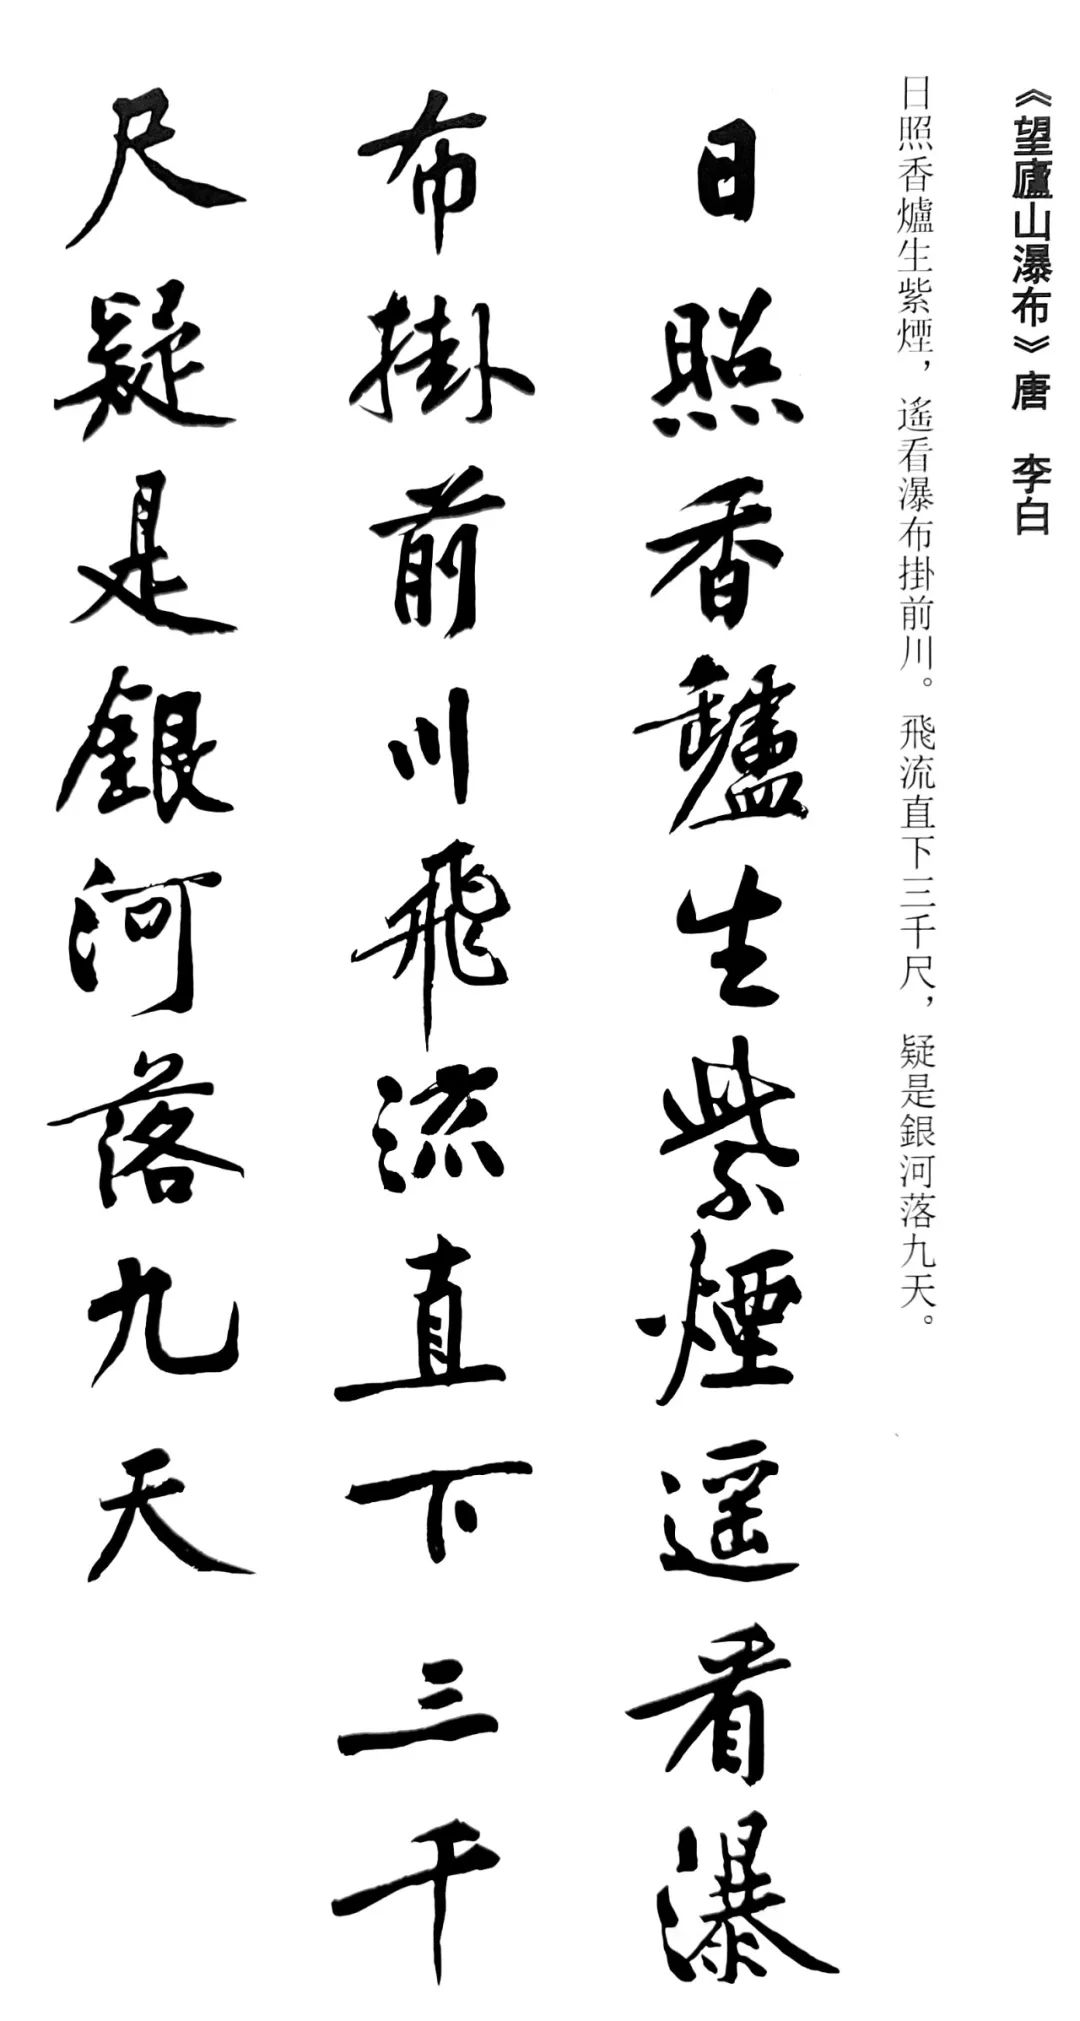 《望廬山瀑布》唐　李白
日照香爐生紫煙，遙看瀑布掛前川。飛流直下三千尺，疑是銀河落九天。
日照香爐生紫煙遥看瀑
布掛前川飛流直下三千
尺疑是銀河落九天